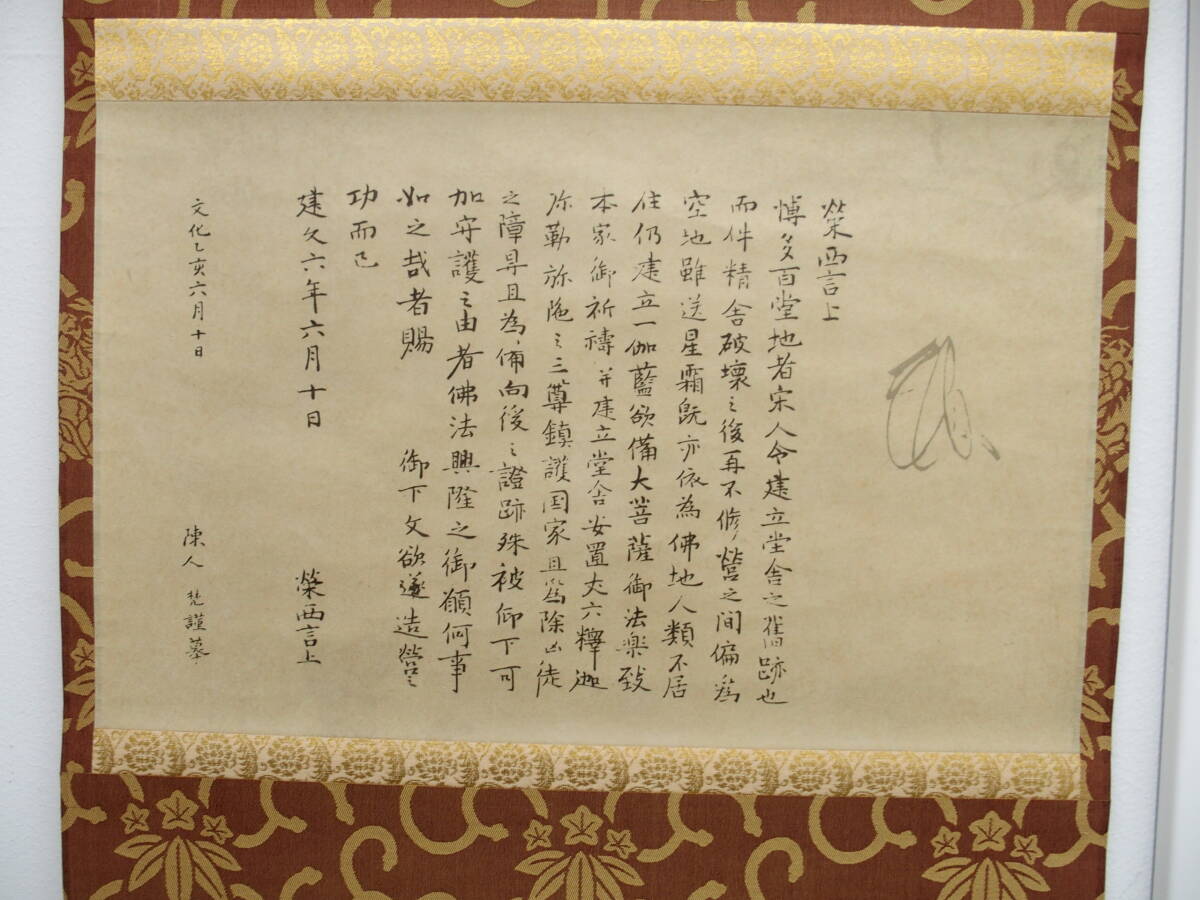 榮西言上
博多百堂地者宋人令建立堂舎之舊跡也
而件精舎破壊之後再不修營之间偏為
空地雖送星霜既亦依為佛地人類不居
住仍建立一伽藍欲備大菩薩御法楽致
本家御祈禱并建立堂舎安置丈六釋迦
弥勒弥陁之三尊鎮護国家且為除凶徒
之障㝵且為備向後之證跡殊被仰下可
加守護之由者佛法興隆之御願何事
如之哉者賜 御下文欲遂造營之
功而已
建久六年六月十日 榮西言上
文化乙亥六月十日 陳人 梵謹摹